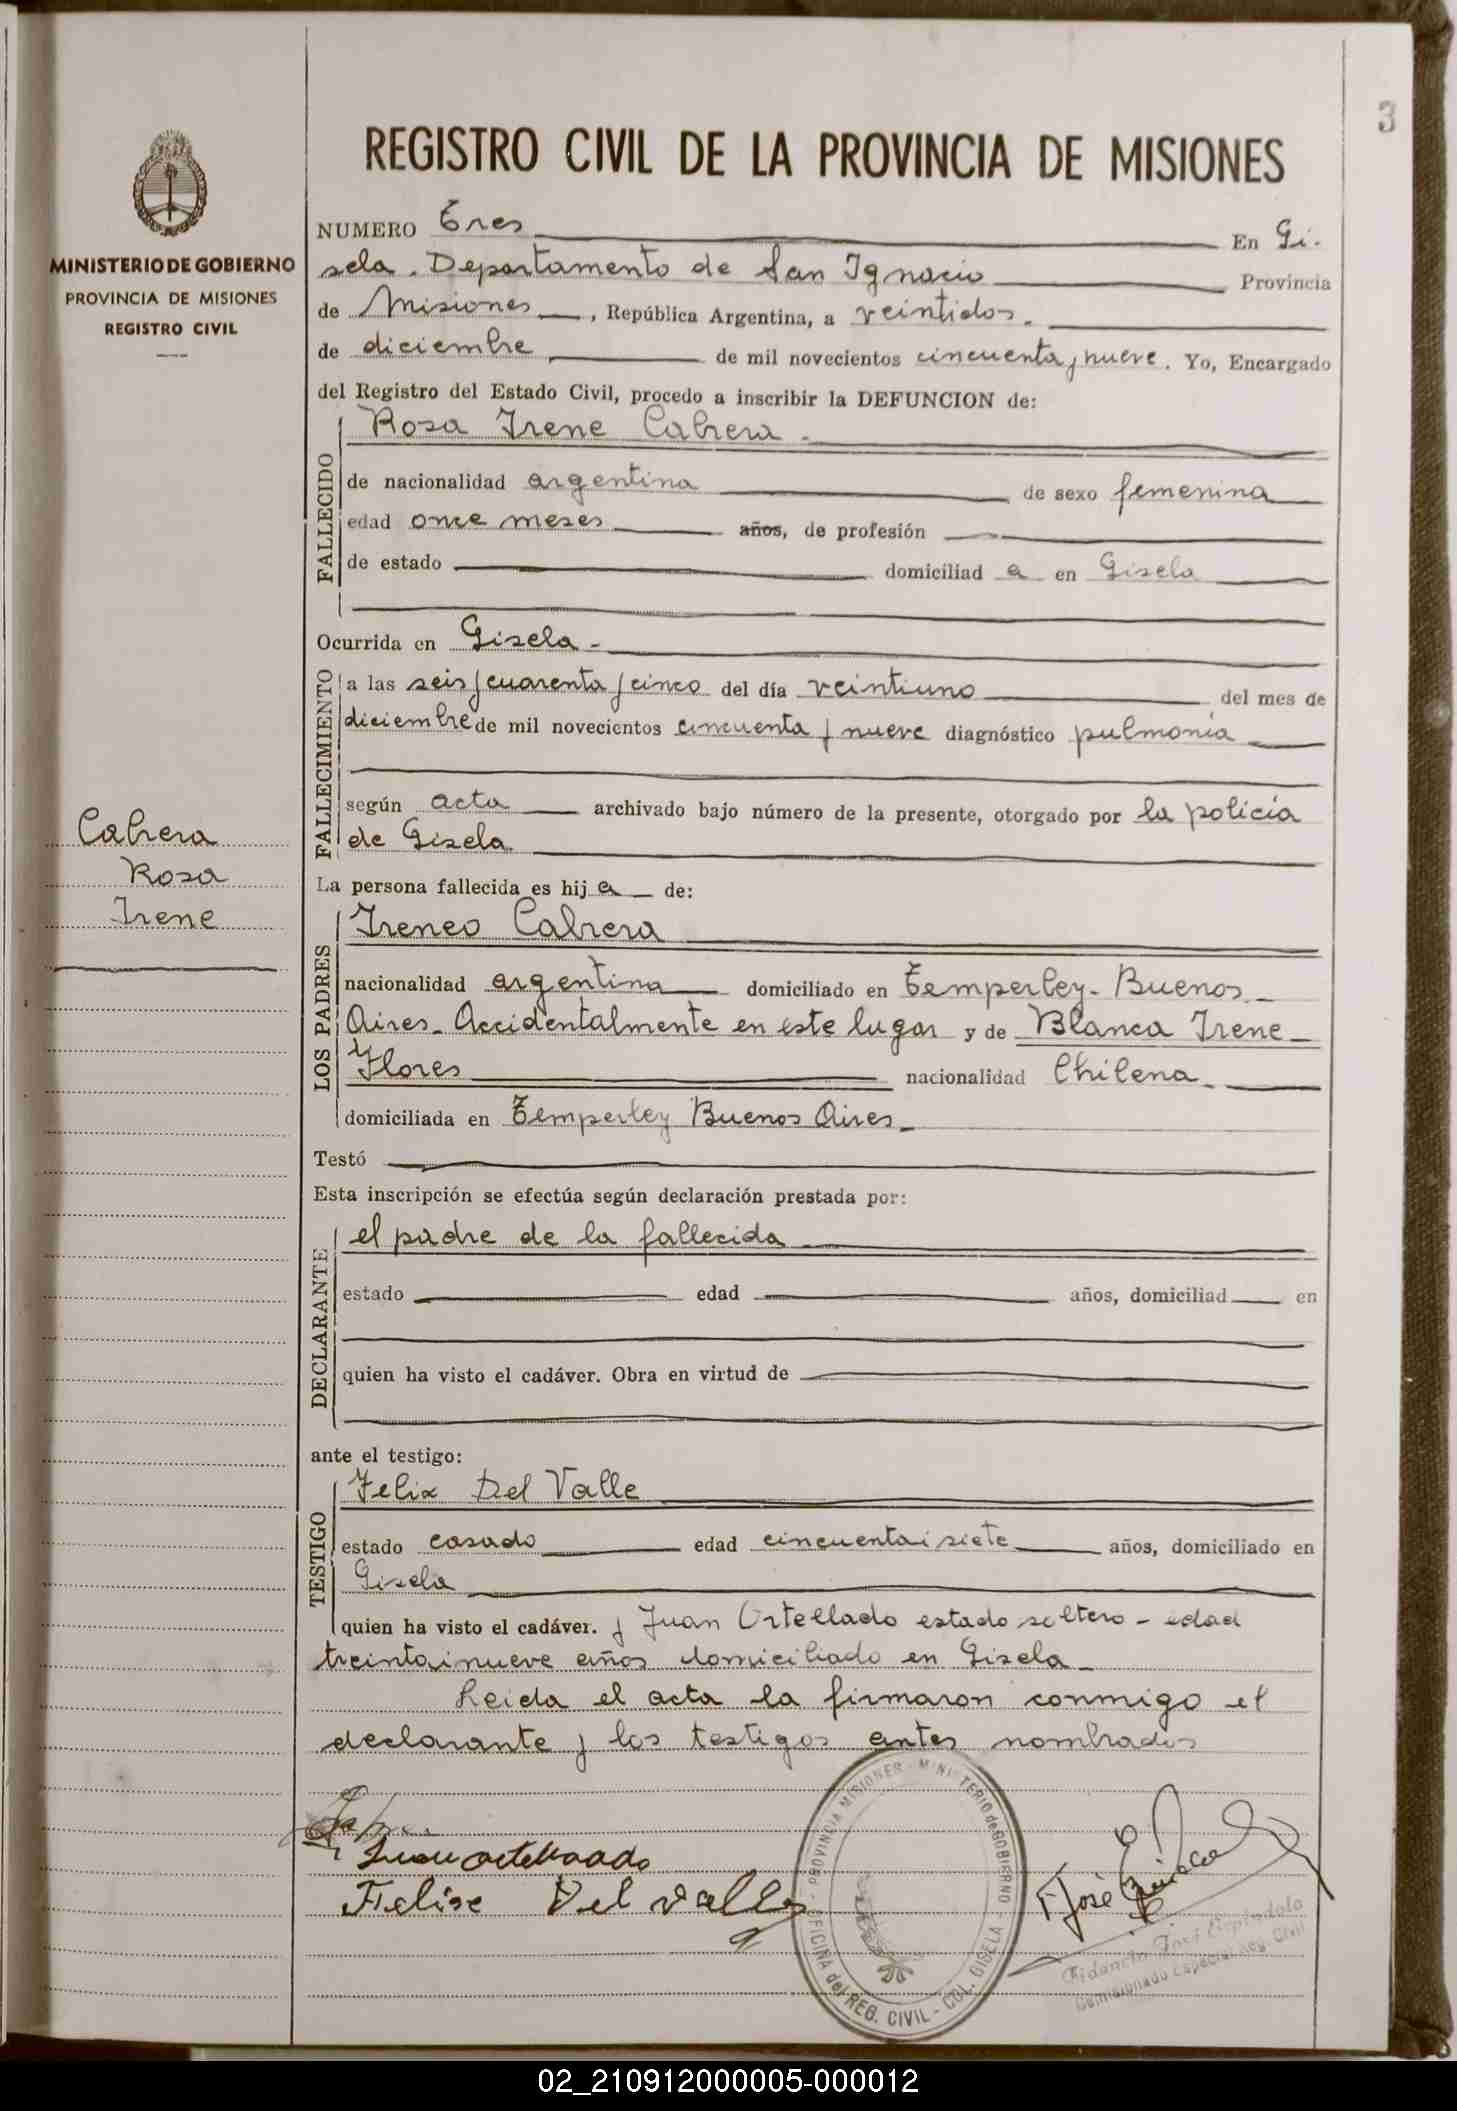 3
REGISTRO CIVIL DE LA PROVINCIA DE MISIONES
MINISTERIO DE GOBIERNO
PROVINCIA DE MISIONES
REGISTRO CIVIL
NUMERO tres En Gi-
sela. Departamento de San Ignacio Provincia
de Misiones, República Argentina, a veintidos.
de diciembre de mil novecientos cincuenta y nueve. Yo, Encargado
del Registro del Estado Civil, procedo a inscribir la DEFUNCION de:
FALLECIDO
Rosa Irene Cabrera.
de nacionalidad argentina de sexo femenina
edad once meses años, de profesión
de estado domiciliad a en Gisela
Ocurrida en Gisela-
FALLECIMIENTO
a las seis y cuarenta y cinco del día veintiuno del mes de
diciembre de mil novecientos cincuenta y nueve diagnóstico pulmonía
según acta archivado bajo número de la presente, otorgado por la policía
de Gisela
Cabrera
Rosa
Irene
La persona fallecida es hij a de:
LOS PADRES
Ireneo Cabrera
nacionalidad argentina domiciliado en Temperley- Buenos
Aires- Accidentalmente en este lugar y de Blanca Irene
Flores nacionalidad Chilena
domiciliada en Temperley Buenos Aires
Testó
Esta inscripción se efectúa según declaración prestada por:
DECLARANTE
el padre de la fallecida
estado edad años, domiciliad en
quien ha visto el cadáver. Obra en virtud de
ante el testigo:
TESTIGO
Felix Del Valle
estado casado edad cincuentaisiete años, domiciliado en
Gisela
quien ha visto el cadáver. y Juan Ortellado estado soltero - edad
treintainueve años domiciliado en Gisela
Leida el acta la firmaron conmigo el
declarante y los testigos antes nombrados
Juan ortellado
Felise Del valle
José
OFICINA del REG. CIVIL - COL. GISELA - PROVINCIA MISIONES - MINISTERIO de GOBIERNO
Fidencio José Espindola
Comisionado Especial Reg. Civil
02_210912000005-000012